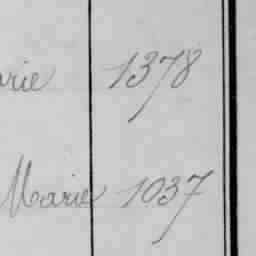 arie 1378
Marie 1037